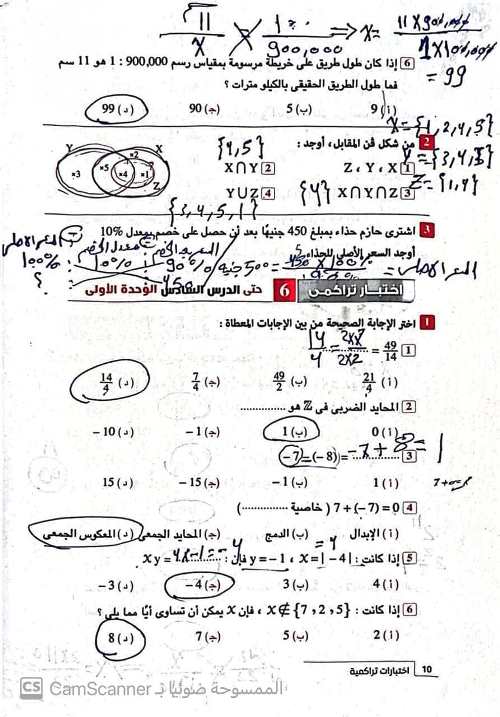 11/x = 1/900,000 => x = 11 x 900,000 / 1 x 100,000
= 99
6 إذا كان طول طريق على خريطة مرسومة بمقياس رسم 900,000 : 1 هو 11 سم
فما طول الطريق الحقيقى بالكيلو مترات ؟
(أ) 9 (ب) 5 (ج) 90 (د) 99
X = {1,2,4,5}
2 من شكل ڤن المقابل، أوجد :
Y = {3,4,5}
Z = {1,4}
1 X ، Y ، Z
2 X∩Y {4,5}
3 X∩Y∩Z {4}
4 Y∪Z {3,4,5,1}
Y X Z
×3 ×5 ×4 ×2 ×1
3 اشترى حازم حذاء بمبلغ 450 جنيهًا بعد أن حصل على خصم بمعدل 10%
أوجد السعر الأصلى للحذاء
100% : 10% : 90%
? : 450
500 جنيه
اختبار تراكمى 6 حتى الدرس السادس الوحدة الأولى
1 اختر الإجابة الصحيحة من بين الإجابات المعطاة :
1 49/14 = ............
(أ) 21/4 (ب) 49/2 (ج) 7/4 (د) 14/4
2 المحايد الضربى فى Z هو ................
(أ) 0 (ب) 1 (ج) 1 – (د) 10 –
3 –7 – (–8) = ............ –7 + 8 = 1
(أ) 1 (ب) 1 – (ج) 15 – (د) 15
4 7 + (–7) = 0 ( خاصية ................ )
(أ) الإبدال (ب) الدمج (ج) المحايد الجمعى (د) المعكوس الجمعى
= 4
5 إذا كانت : x = |–4| ، y = –1 فإن : xy = 4 x –1 = –4
(أ) 4 (ب) 3 (ج) 4 – (د) 3 –
6 إذا كانت : x ∉ {7 , 2 , 5} ، فإن x يمكن أن تساوى أيًا مما يلى ؟
(أ) 2 (ب) 5 (ج) 7 (د) 8
10 اختبارات تراكمية
CS CamScanner الممسوحة ضوئيا بـ